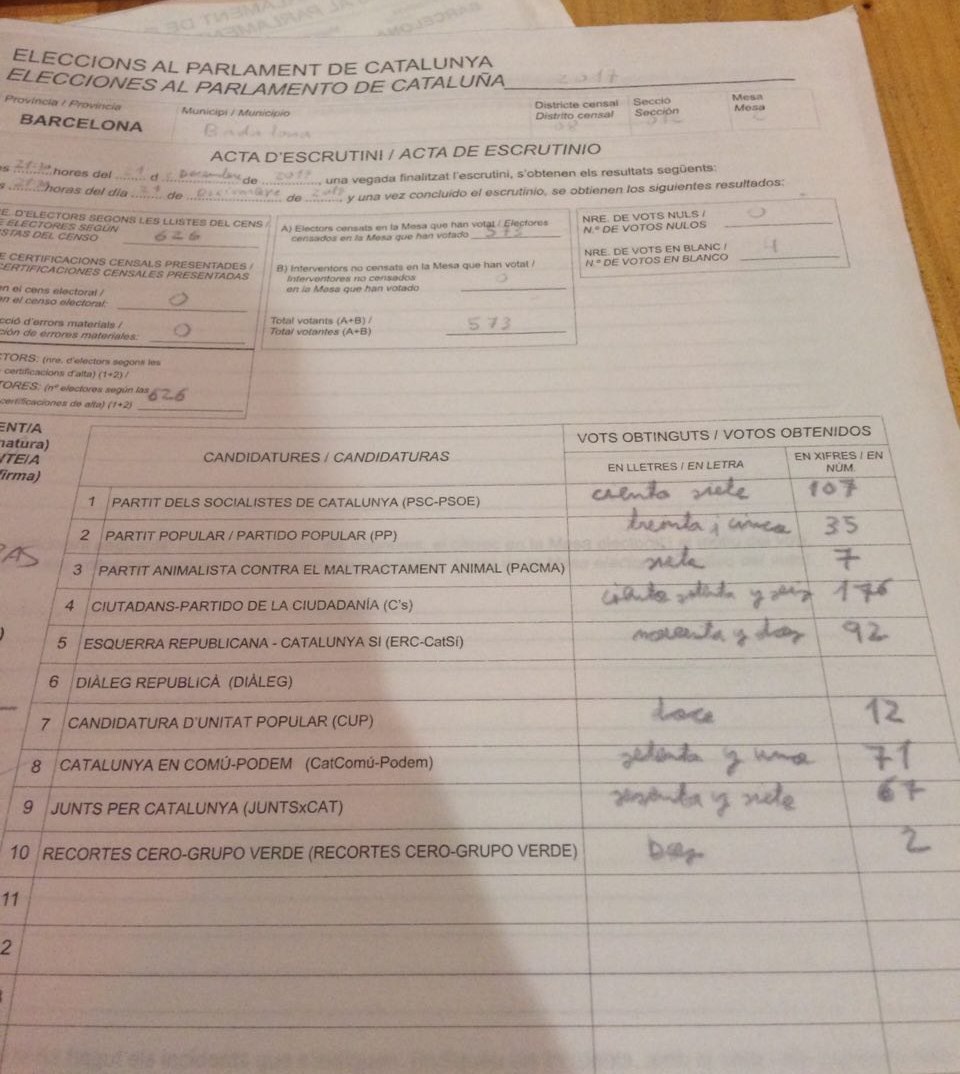 ELECCIONS AL PARLAMENT DE CATALUNYA
ELECCIONES AL PARLAMENTO DE CATALUÑA 2017
Provincia / Provincia
BARCELONA
Municipi / Municipio
Badalona
Districte censal
Distrito censal
Secció
Sección
Mesa
Mesa
ACTA D'ESCRUTINI / ACTA DE ESCRUTINIO
hores del d de , una vegada finalitzat l'escrutini, s'obtenen els resultats següents:
horas del día de de , y una vez concluido el escrutinio, se obtienen los siguientes resultados:
E. D'ELECTORS SEGONS LES LLISTES DEL CENS /
E ELECTORES SEGÚN
STAS DEL CENSO 626
E CERTIFICACIONS CENSALS PRESENTADES /
CERTIFICACIONES CENSALES PRESENTADAS
en el cens electoral /
en el censo electoral: 0
cció d'errors materials /
ción de errores materiales: 0
TORS: (nre. d'electors segons les
certificacions d'alta) (1+2) /
TORES: (nº electores según las
certificaciones de alta) (1+2) 626
A) Electors censats en la Mesa que han votat / Electores
censados en la Mesa que han votado 573
B) Interventors no censats en la Mesa que han votat /
Interventores no censados
en la Mesa que han votado 0
Total votants (A+B) /
Total votantes (A+B) 573
NRE. DE VOTS NULS /
N.º DE VOTOS NULOS 0
NRE. DE VOTS EN BLANC /
N.º DE VOTOS EN BLANCO 4
ENT/A
natura)
NTE/A
firma)
CANDIDATURES / CANDIDATURAS
VOTS OBTINGUTS / VOTOS OBTENIDOS
EN LLETRES / EN LETRA
EN XIFRES / EN
NÚM.
1 PARTIT DELS SOCIALISTES DE CATALUNYA (PSC-PSOE) ciento siete 107
2 PARTIT POPULAR / PARTIDO POPULAR (PP) treinta i cinco 35
3 PARTIT ANIMALISTA CONTRA EL MALTRACTAMENT ANIMAL (PACMA) siete 7
4 CIUTADANS-PARTIDO DE LA CIUDADANÍA (C's) ciento setenta y seis 176
5 ESQUERRA REPUBLICANA - CATALUNYA SI (ERC-CatSí) noventa y dos 92
6 DIÀLEG REPUBLICÀ (DIÀLEG)
7 CANDIDATURA D'UNITAT POPULAR (CUP) doce 12
8 CATALUNYA EN COMÚ-PODEM (CatComú-Podem) setenta y uno 71
9 JUNTS PER CATALUNYA (JUNTSxCAT) sesenta y siete 67
10 RECORTES CERO-GRUPO VERDE (RECORTES CERO-GRUPO VERDE) Dos 2
11
2